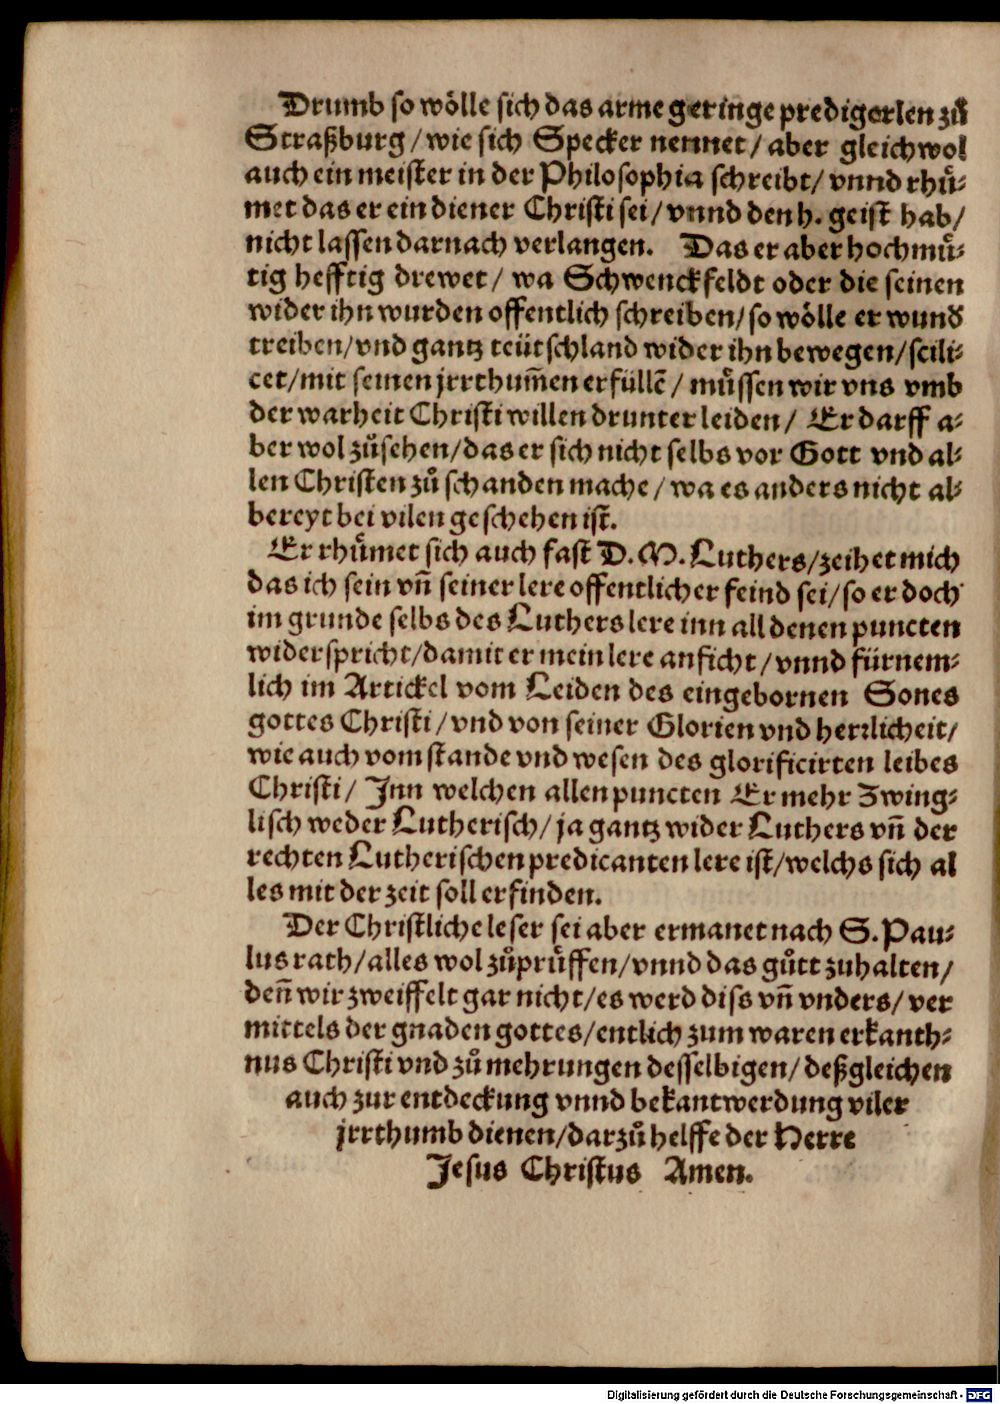 Drumb so wölle sich das arme geringe predigerlen zů
Straßburg / wie sich Specker nennet / aber gleichwol
auch ein meister in der Philosophia schreibt / vnnd rhuͤ-
met das er ein diener Christi sei / vnnd den h. geist hab /
nicht lassen darnach verlangen. Das er aber hochmuͤ-
tig hefftig drewet / wa Schwenckfeldt oder die seinen
wider ihn wurden offentlich schreiben / so wölle er wund
treiben / vnd gantz teütschland wider ihn bewegen / scili-
cet / mit seinen jrrthum̃en erfüllẽ / muͤssen wir vns vmb
der warheit Christi willen drunter leiden / Er darff a-
ber wol zůsehen / das er sich nicht selbs vor Gott vnd al-
len Christen zů schanden mache / wa es anders nicht al-
bereyt bei vilen geschehen ist.
Er rhuͤmet sich auch fast D. M. Luthers / zeihet mich
das ich sein vñ seiner lere offentlicher feind sei / so er doch
im grunde selbs des Luthers lere inn all denen puncten
widerspricht / damit er mein lere anficht / vnnd fürnem-
lich im Artickel vom Leiden des eingebornen Sones
gottes Christi / vnd von seiner Glorien vnd herꝛlicheit /
wie auch vom stande vnd wesen des glorificirten leibes
Christi / Inn welchen allen puncten Er mehr Zwing-
lisch weder Lutherisch / ja gantz wider Luthers vñ der
rechten Lutherischen predicanten lere ist / welchs sich al
les mit der zeit soll erfinden.
Der Christliche leser sei aber ermanet nach S. Pau-
lus rath / alles wol zůpruͤffen / vnnd das gůtt zuhalten /
deñ wir zweiffelt gar nicht / es werd diss vñ vnders / ver
mittels der gnaden gottes / entlich zum waren erkanth-
nus Christi vnd zů mehrungen desselbigen / deßgleichen
auch zur entdeckung vnnd bekantwerdung viler
jrrthumb dienen / darzů helffe der Herre
Jesus Christus Amen.
Digitalisierung gefördert durch die Deutsche Forschungsgemeinschaft - DFG